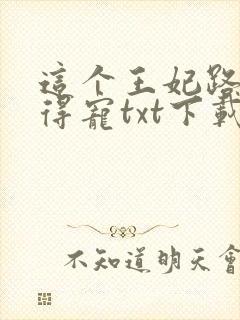 這个王妃路
得寵txt下載
不知道明天會